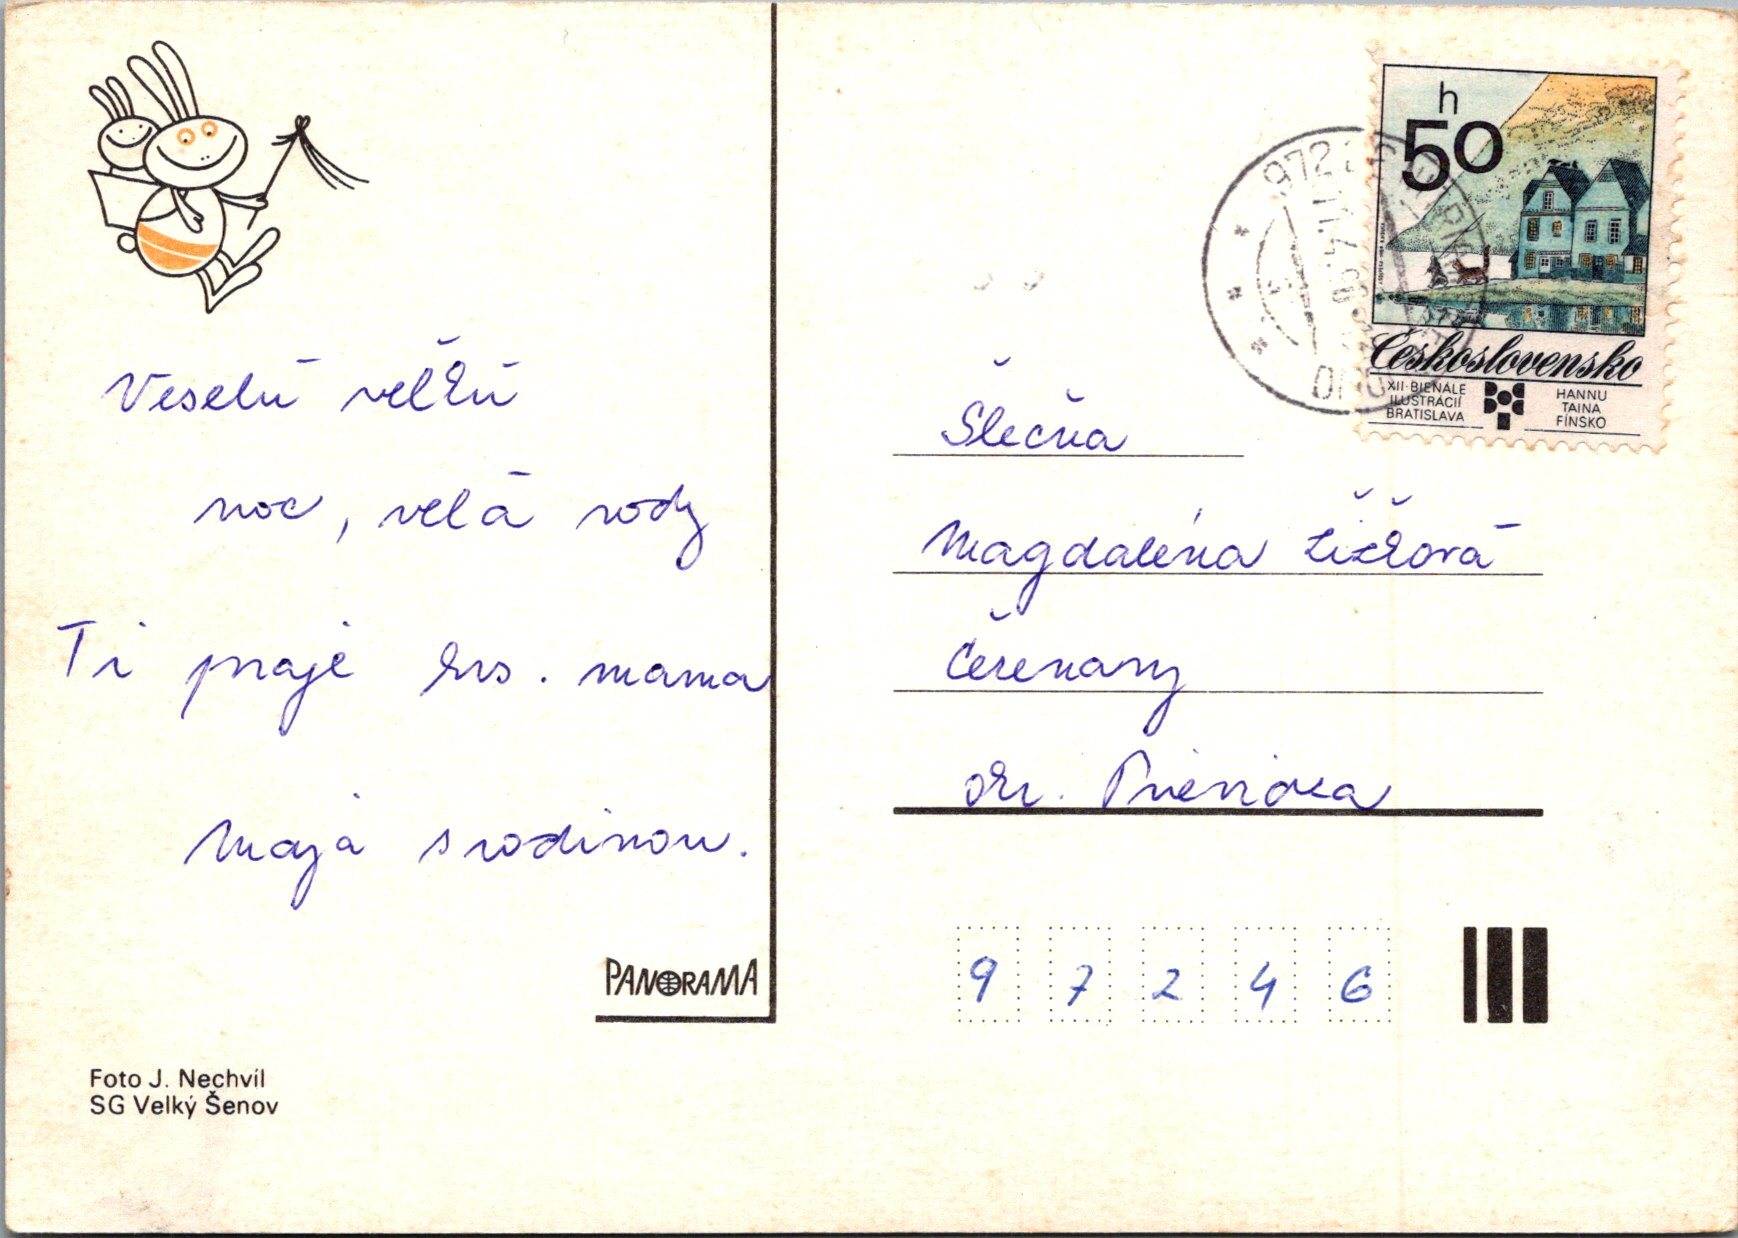 Veselú veľkú
noc, veľa vody
Ti praje krs. mama
Maja s rodinou.
PANORAMA
Foto J. Nechvíl
SG Velký Šenov
h
50
Československo
XII. BIENÁLE
ILUSTRÁCIÍ
BRATISLAVA
HANNU
TAINA
FÍNSKO
Slečna
Magdaléna
Čerenany
okr. Prievidza
97246